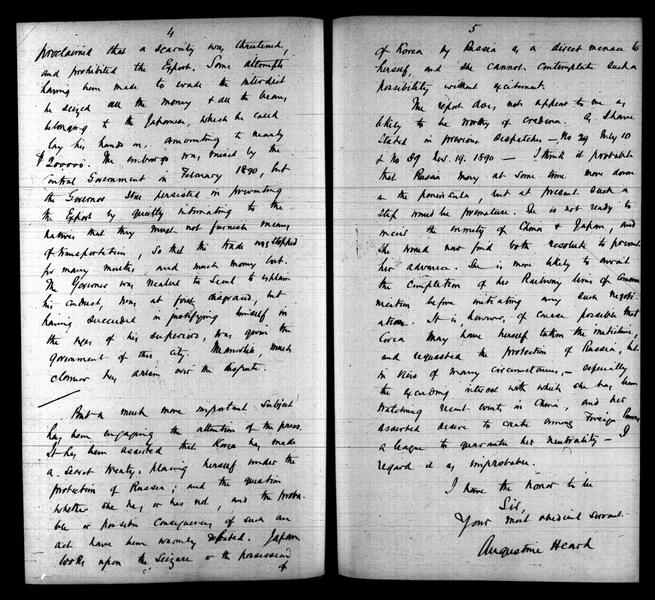 4
proclaimed that a scarcity was threatened,
and prohibited the Export. Some attempts
having been made to evade the interdict
he seized all the money & all the beans
belonging to the Japanese, which he could
lay his hands on, amounting to nearly
$200000. The embargo was raised by the
Central Government in February 1890, but
the Governor still persisted in preventing
the Export by quietly intimating to the
natives that they must not furnish means
of transportation, so that the trade was stopped
for many months and much money lost.
The Governor was recalled to Seoul to explain
his conduct, was at first disgraced, but
having succeeded in justifying himself in
the eyes of his superiors, was given the
government of this city. Meanwhile, much
clamor has arisen over the dispute.
But a much more important subject
has been engaging the attention of the press.
It has been asserted that Korea has made
a secret treaty, placing herself under the
protection of Russia; and the question
whether she has, or has not, and the proba-
ble or possible consequences of such an
act have been warmly debated. Japan
looks upon the seizure or the possession
of
5
of Korea by Russia as a direct menace to
herself, and she cannot contemplate such a
possibility without excitement.
The report does not appear to me as
likely to be worthy of credence. As I have
stated in previous despatches – No 29 July 10
& No 89 Nov. 19. 1890 – I think it probable
that Russia may at some time move down
on the peninsula, but at present such a
step would be premature. She is not ready to
meet the enmity of China & Japan, and
she would now find both resolute to prevent
her advance. She is more likely to await
the completion of her Railway lines of Commu-
nication before initiating any such negoti-
ation. It is, however, of course possible that
Corea may have herself taken the initiative,
and requested the protection of Russia, but
in view of many circumstances, – especially
the exceeding interest with which she has been
watching recent events in China, and her
asserted desire to create among Foreign Powers
a league to guarantee her neutrality – I
regard it as improbable.
I have the honor to be
Sir,
Your most obedient servant.
Augustine Heard